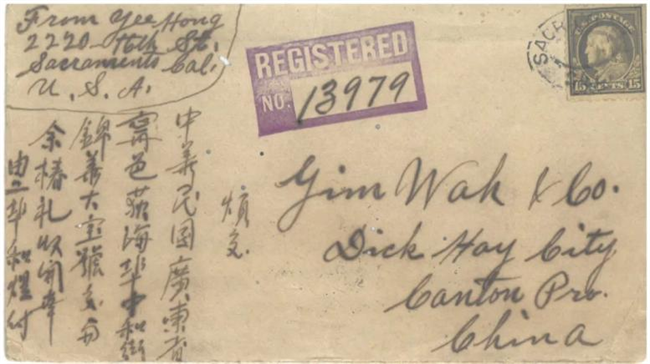 From Yee Hong
2220 - 16th St.
Sacramento Cal.
U. S. A.
REGISTERED
NO. 13979
SACR
U.S. POSTAGE
15 CENTS 15
Gim Wah & Co.
Dick Hoy City
Canton Pro.
China
煩交
中華民國廣東省
甯邑荻海埠中和街
錦華大宝號交与
余椿礼収開
由二埠和煜付